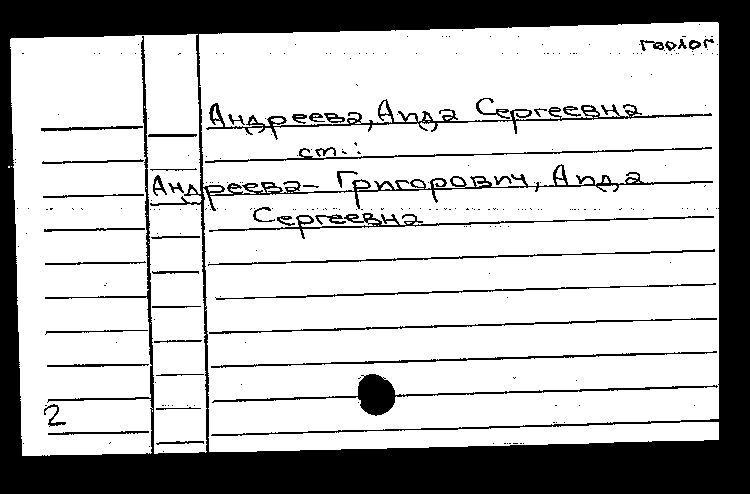 геолог
Андреева, Аида Сергеевна
ст.:
Андреева-Григорович, Аида
Сергеевна
2